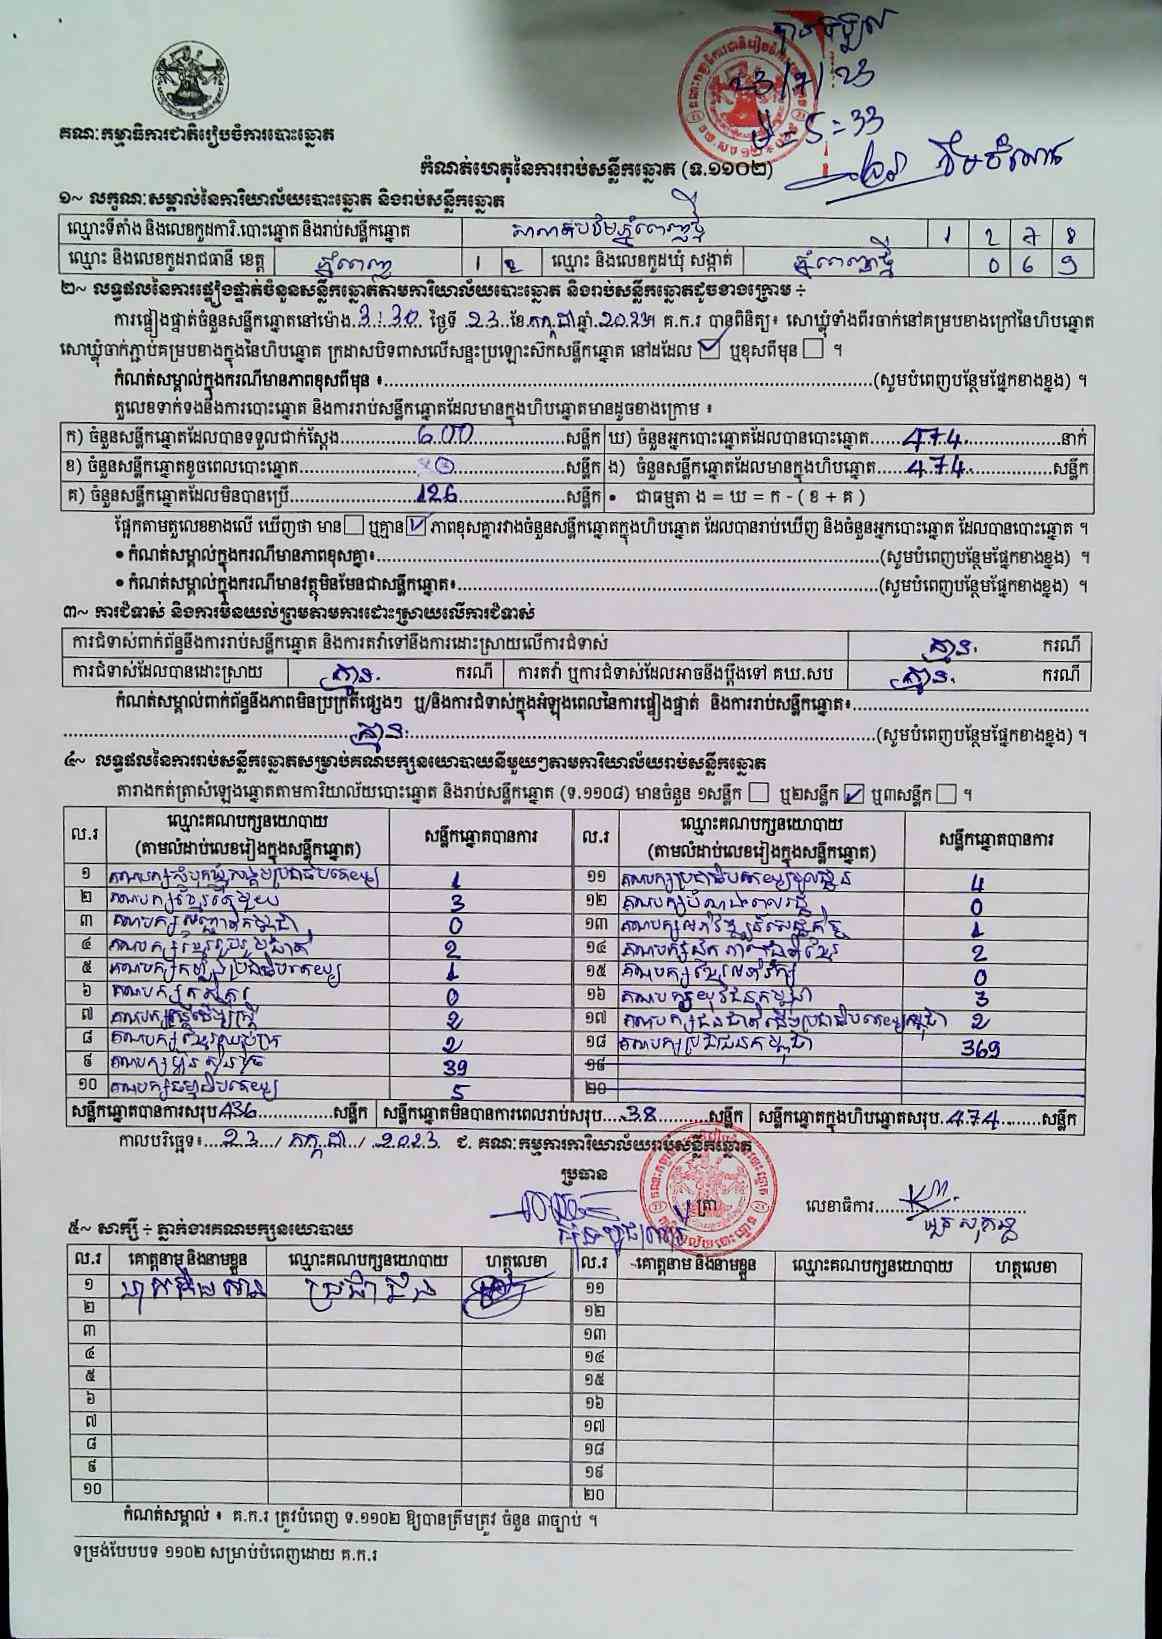 គណៈកម្មាធិការជាតិរៀបចំការបោះឆ្នោត
23/7/23
5:33
កំណត់ហេតុនៃការរាប់សន្លឹកឆ្នោត (ទ.១១០២)
១~ លក្ខណៈសម្គាល់នៃការិយាល័យបោះឆ្នោត និងរាប់សន្លឹកឆ្នោត
ឈ្មោះទីតាំង និងលេខកូដការិ.បោះឆ្នោត និងរាប់សន្លឹកឆ្នោត 1 2 7 8
ឈ្មោះ និងលេខកូដរាជធានី ខេត្ត ភ្នំពេញ 1 2 ឈ្មោះ និងលេខកូដឃុំ សង្កាត់ ភ្នំពេញថ្មី 0 6 9
២~ លទ្ធផលនៃការផ្ទៀងផ្ទាត់ចំនួនសន្លឹកឆ្នោតតាមការិយាល័យបោះឆ្នោត និងរាប់សន្លឹកឆ្នោតដូចខាងក្រោម ÷
ការផ្ទៀងផ្ទាត់ចំនួនសន្លឹកឆ្នោតនៅម៉ោង 3:30 ថ្ងៃទី 23 ខែ កក្កដា ឆ្នាំ 2023។ គ.ក.រ បានពិនិត្យ៖ សោឃ្លុំទាំងពីរចាក់នៅគម្របខាងក្រៅនៃហិបឆ្នោត
សោឃ្លុំចាក់ភ្ជាប់គម្របខាងក្នុងនៃហិបឆ្នោត ក្រដាសបិទពាសលើសន្ទះប្រឡោះស៊កសន្លឹកឆ្នោត នៅដដែល ☑ ឬខុសពីមុន ☐ ។
កំណត់សម្គាល់ក្នុងករណីមានភាពខុសពីមុន ៖ (សូមបំពេញបន្ថែមផ្នែកខាងខ្នង) ។
តួលេខទាក់ទងនឹងការបោះឆ្នោត និងការរាប់សន្លឹកឆ្នោតដែលមានក្នុងហិបឆ្នោតមានដូចខាងក្រោម ៖
ក) ចំនួនសន្លឹកឆ្នោតដែលបានទទួលជាក់ស្តែង 600 សន្លឹក ឃ) ចំនួនអ្នកបោះឆ្នោតដែលបានបោះឆ្នោត 474 នាក់
ខ) ចំនួនសន្លឹកឆ្នោតខូចពេលបោះឆ្នោត 0 សន្លឹក ង) ចំនួនសន្លឹកឆ្នោតដែលមានក្នុងហិបឆ្នោត 474 សន្លឹក
គ) ចំនួនសន្លឹកឆ្នោតដែលមិនបានប្រើ 126 សន្លឹក • ជាធម្មតា ង = ឃ = ក - ( ខ + គ )
ផ្អែកតាមតួលេខខាងលើ ឃើញថា មាន ☐ ឬគ្មាន ☑ ភាពខុសគ្នារវាងចំនួនសន្លឹកឆ្នោតក្នុងហិបឆ្នោត ដែលបានរាប់ឃើញ និងចំនួនអ្នកបោះឆ្នោត ដែលបានបោះឆ្នោត ។
• កំណត់សម្គាល់ក្នុងករណីមានភាពខុសគ្នា៖ (សូមបំពេញបន្ថែមផ្នែកខាងខ្នង) ។
• កំណត់សម្គាល់ក្នុងករណីមានវត្ថុមិនមែនជាសន្លឹកឆ្នោត៖ (សូមបំពេញបន្ថែមផ្នែកខាងខ្នង) ។
៣~ ការជំទាស់ និងការមិនយល់ព្រមតាមការដោះស្រាយលើការជំទាស់
ការជំទាស់ពាក់ព័ន្ធនឹងការរាប់សន្លឹកឆ្នោត និងការតវ៉ាទៅនឹងការដោះស្រាយលើការជំទាស់ គ្មាន. ករណី
ការជំទាស់ដែលបានដោះស្រាយ គ្មាន. ករណី ការតវ៉ា ឬការជំទាស់ដែលអាចនឹងប្តឹងទៅ គឃ.សប គ្មាន. ករណី
កំណត់សម្គាល់ពាក់ព័ន្ធនឹងភាពមិនប្រក្រតីផ្សេងៗ ឬ/និងការជំទាស់ក្នុងអំឡុងពេលនៃការផ្ទៀងផ្ទាត់ និងការរាប់សន្លឹកឆ្នោត៖
គ្មាន. (សូមបំពេញបន្ថែមផ្នែកខាងខ្នង) ។
៤~ លទ្ធផលនៃការរាប់សន្លឹកឆ្នោតសម្រាប់គណបក្សនយោបាយនីមួយៗតាមការិយាល័យរាប់សន្លឹកឆ្នោត
តារាងកត់ត្រាសំឡេងឆ្នោតតាមការិយាល័យបោះឆ្នោត និងរាប់សន្លឹកឆ្នោត (ទ.១១០៨) មានចំនួន ១សន្លឹក ☐ ឬ២សន្លឹក ☑ ឬ៣សន្លឹក ☐ ។
ល.រ ឈ្មោះគណបក្សនយោបាយ (តាមលំដាប់លេខរៀងក្នុងសន្លឹកឆ្នោត) សន្លឹកឆ្នោតបានការ ល.រ ឈ្មោះគណបក្សនយោបាយ (តាមលំដាប់លេខរៀងក្នុងសន្លឹកឆ្នោត) សន្លឹកឆ្នោតបានការ
១ គណបក្សសំបុកឃ្មុំសង្គមប្រជាធិបតេយ្យ 1 ១១ គណបក្សប្រជាធិបតេយ្យមូលដ្ឋាន 4
២ គណបក្សខ្មែរតែមួយ 3 ១២ គណបក្ស 0
៣ គណបក្សសញ្ជាតិកម្ពុជា 0 ១៣ គណបក្ស 1
៤ គណបក្សខ្មែររួបរួមជាតិ 2 ១៤ គណបក្ស 2
៥ គណបក្សកម្លាំងប្រជាធិបតេយ្យ 1 ១៥ គណបក្សខ្មែរអភិរក្ស 0
៦ គណបក្សកសិករ 0 ១៦ គណបក្សយុវជនកម្ពុជា 3
៧ គណបក្សស្ត្រីដើម្បីស្ត្រី 2 ១៧ គណបក្សជនជាតិដើមប្រជាធិបតេយ្យកម្ពុជា 2
៨ គណបក្សខ្មែរឈប់ក្រ 2 ១៨ គណបក្សប្រជាជនកម្ពុជា 369
៩ គណបក្សហ៊្វុនស៊ិនប៉ិច 39 ១៩
១០ គណបក្សធម្មាធិបតេយ្យ 5 ២០
សន្លឹកឆ្នោតបានការសរុប 436 សន្លឹក សន្លឹកឆ្នោតមិនបានការពេលរាប់សរុប 38 សន្លឹក សន្លឹកឆ្នោតក្នុងហិបឆ្នោតសរុប 474 សន្លឹក
កាលបរិច្ឆេទ៖ 23 / កក្កដា / 2023 ជ. គណៈកម្មការការិយាល័យរាប់សន្លឹកឆ្នោត
ប្រធាន
ត្រា លេខាធិការ
៥~ សាក្សី ÷ ភ្នាក់ងារគណបក្សនយោបាយ
ល.រ គោត្តនាម និងនាមខ្លួន ឈ្មោះគណបក្សនយោបាយ ហត្ថលេខា ល.រ គោត្តនាម និងនាមខ្លួន ឈ្មោះគណបក្សនយោបាយ ហត្ថលេខា
១ ប្រជាជន ១១
២ ១២
៣ ១៣
៤ ១៤
៥ ១៥
៦ ១៦
៧ ១៧
៨ ១៨
៩ ១៩
១០ ២០
កំណត់សម្គាល់ ៖ គ.ក.រ ត្រូវបំពេញ ទ.១១០២ ឱ្យបានត្រឹមត្រូវ ចំនួន ៣ច្បាប់ ។
ទម្រង់បែបបទ ១១០២ សម្រាប់បំពេញដោយ គ.ក.រ